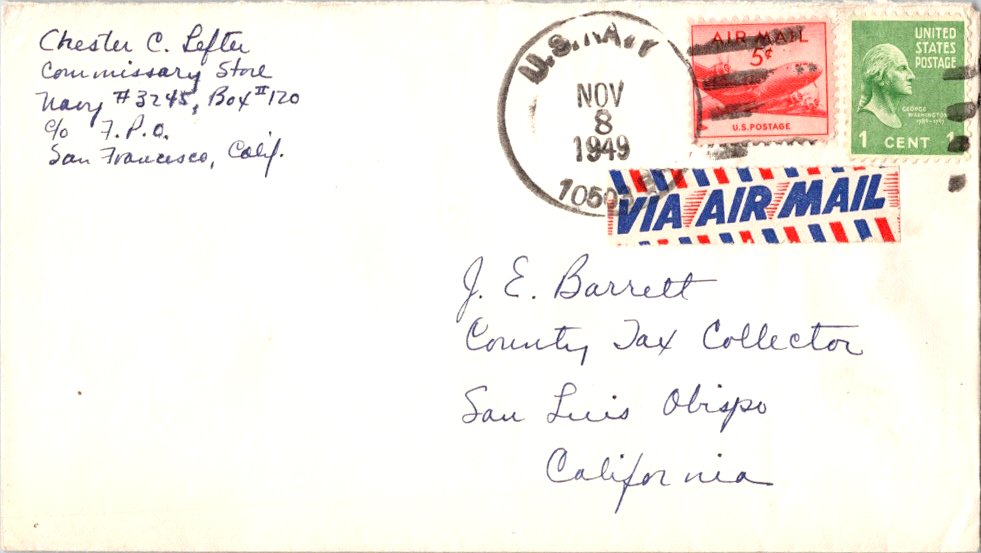 Chester C. Lefter
Commissary Store
Navy #3245, Box II 120
c/o F.P.O.
San Francesco, Calif.
U.S. NAVY
NOV
8
1949
AIR MAIL
5¢
U.S. POSTAGE
UNITED
STATES
POSTAGE
GEORGE
WASHINGTON
1 CENT 1
VIA AIR MAIL
J. E. Barrett
County Tax Collector
San Luis Obispo
California